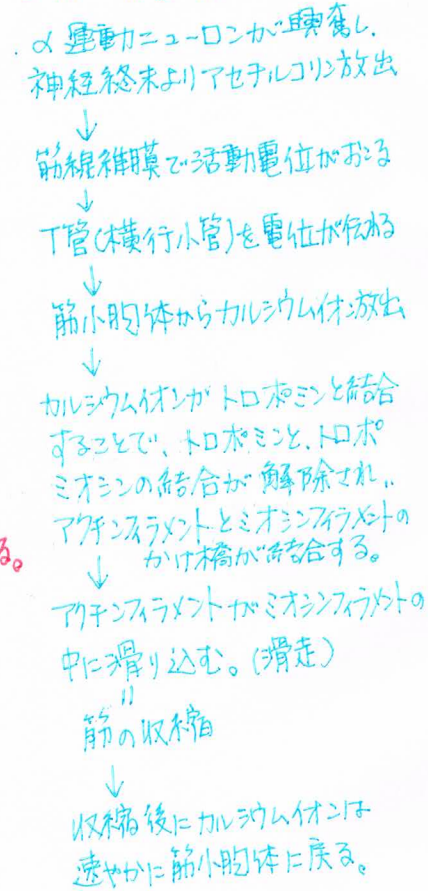 α運動ニューロンが興奮し、
神経終末よりアセチルコリン放出
↓
筋線維膜で活動電位がおこる
↓
T管(横行小管)を電位が伝わる
↓
筋小胞体からカルシウムイオン放出
↓
カルシウムイオンがトロポミンと結合
することで、トロポミンと、トロポ
ミオシンの結合が解除され、
アクチンフィラメントとミオシンフィラメントの
かけ橋が結合する。
る。
↓
アクチンフィラメントがミオシンフィラメントの
中に滑り込む。(滑走)
〃
筋の収縮
↓
収縮後にカルシウムイオンは
速やかに筋小胞体に戻る。